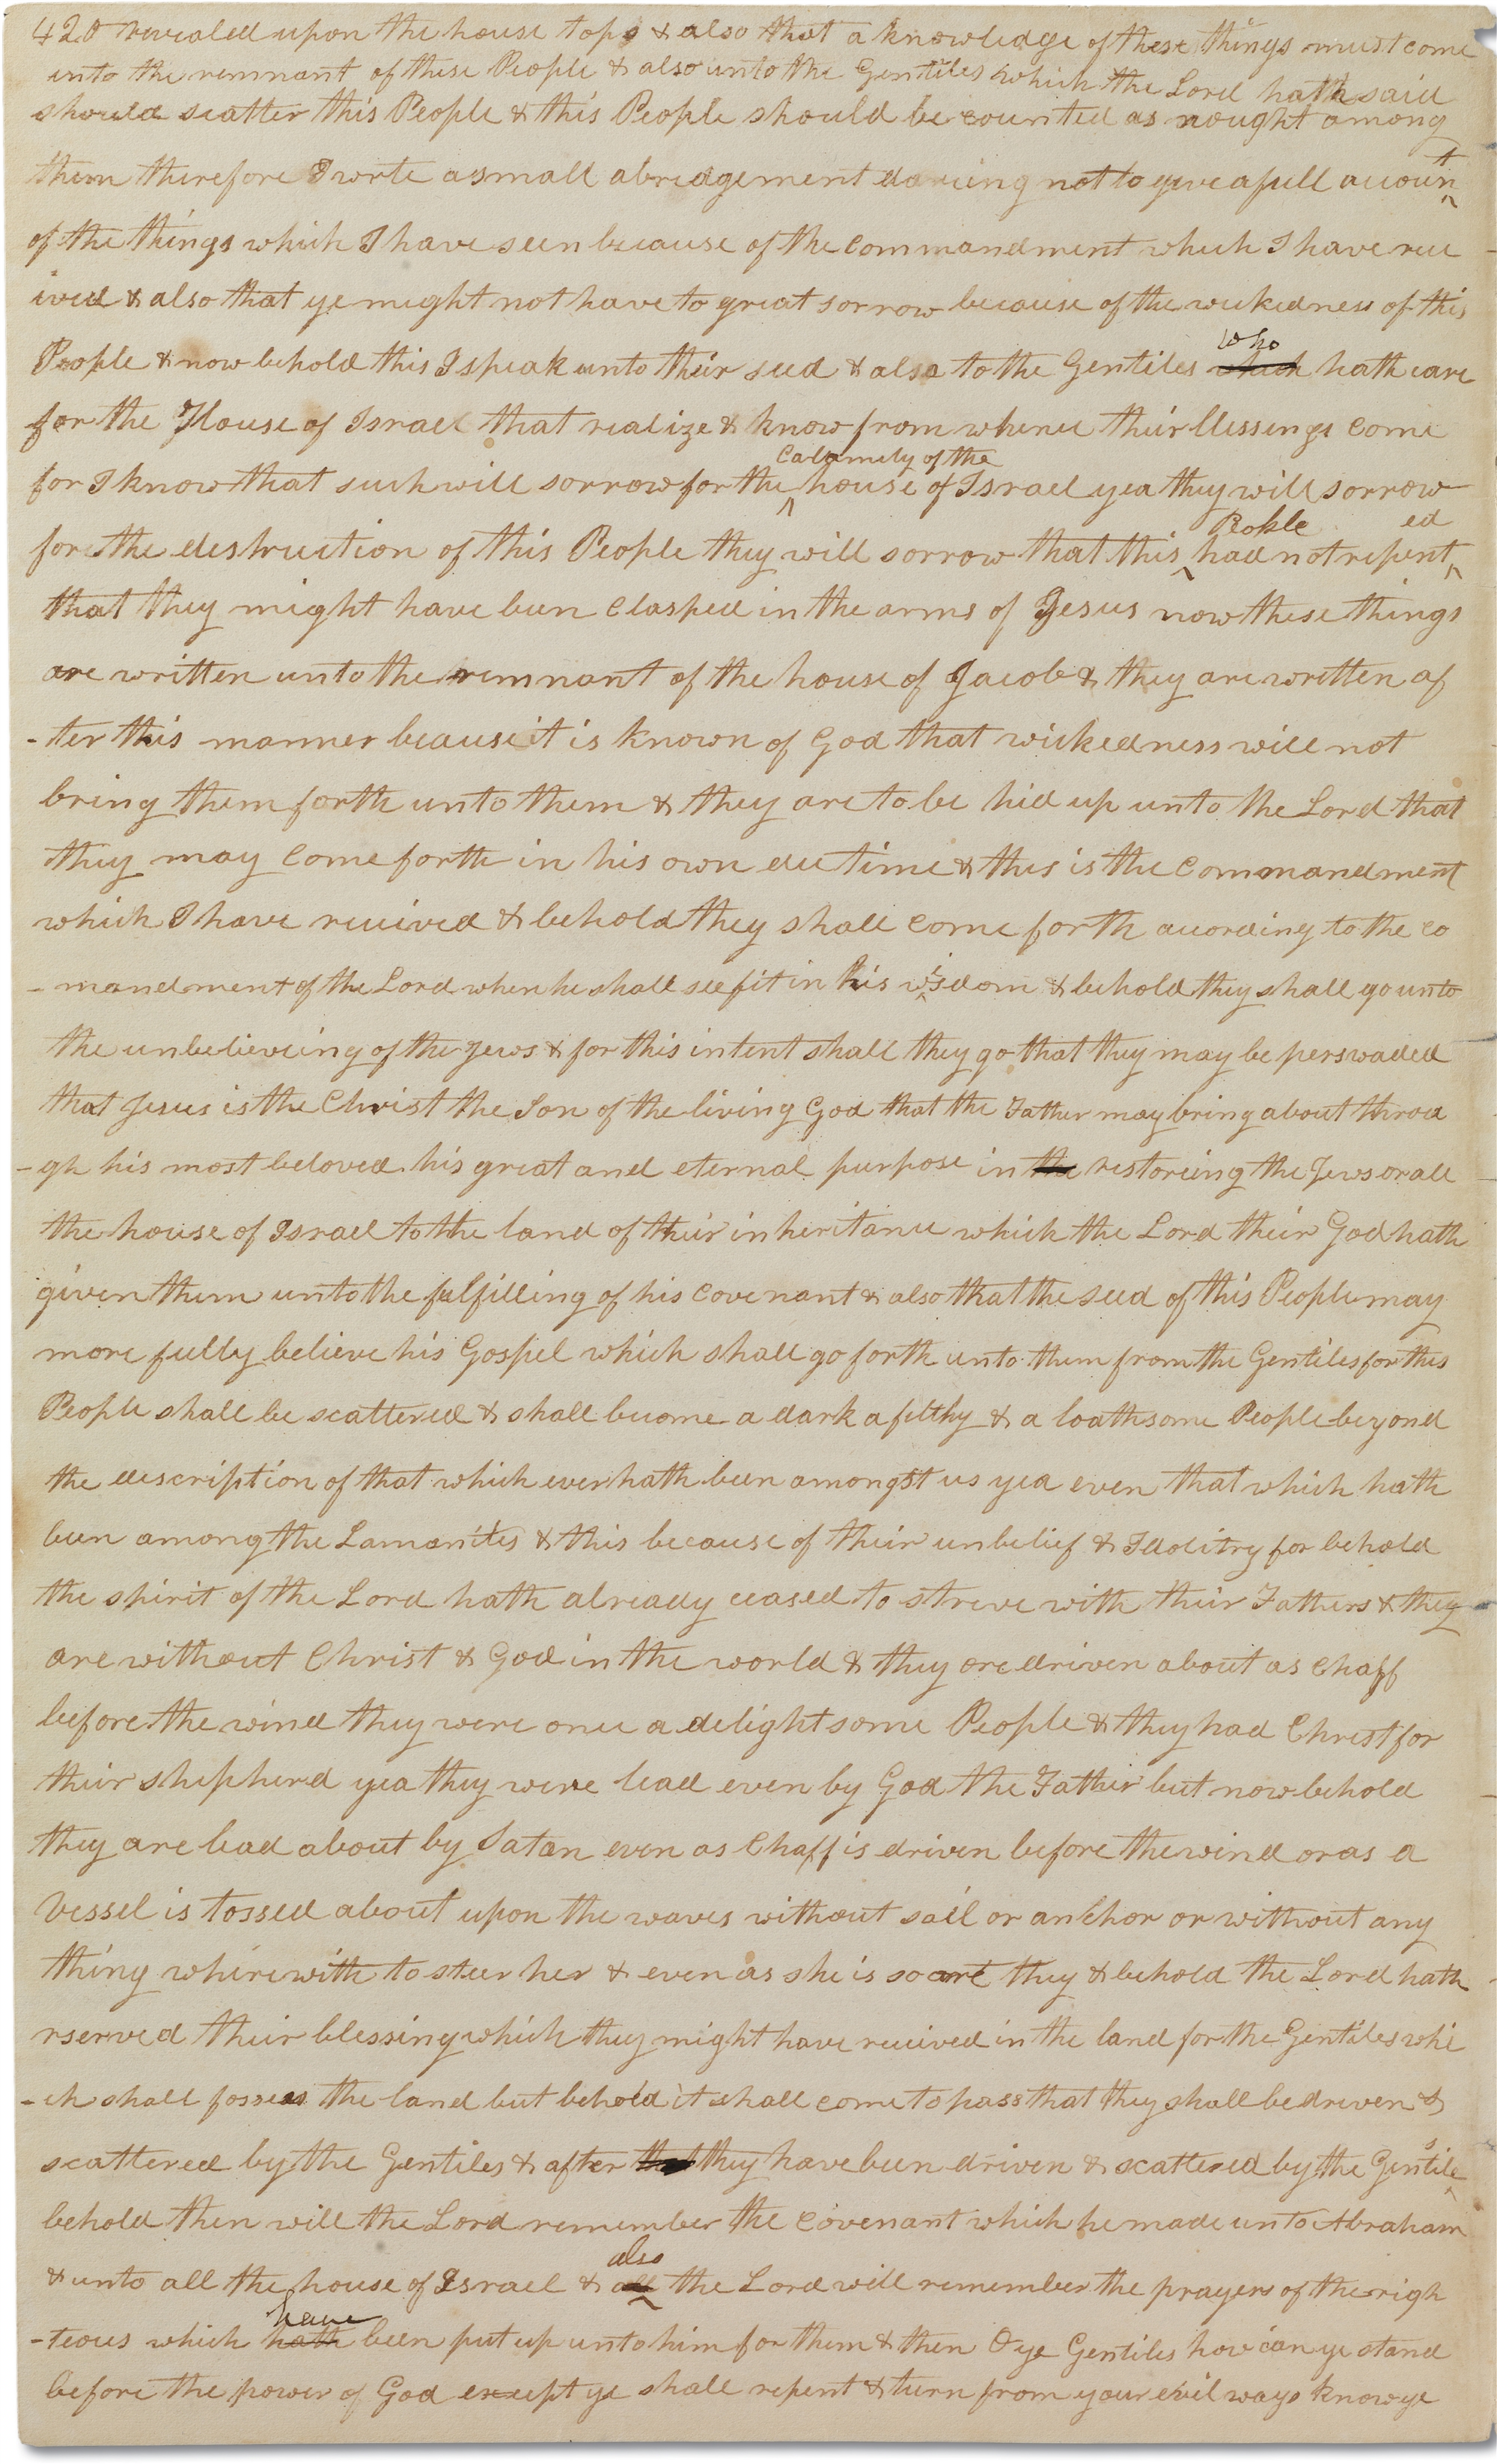 420 revealed upon the house tops & also that a knowledge of these things must come
unto the remnant of these People & also unto the Gentiles which the Lord hath said
should scatter this People & this People should be counted as nought among
them therefore I write a small abridgement dareing not to give a full accoun^t
of the things which I have seen because of the commandment which I have rece
ived & also that ye might not have to great sorrow because of the wickedness of this
who
People & now behold this I speak unto their seed & also to the Gentiles which hath care
for the House of Israel that realize & know from whence their blessings come
Calamity of the
for I know that such will sorrow for the ^ house of Israel yea they will sorrow
People ed
for the destruction of this People they will sorrow that this ^ had not repent^
that they might have been clasped in the arms of Jesus now these things
are written unto the remnant of the house of Jacob & they are written af
-ter this manner because it is known of God that wickedness will not
bring them forth unto them & they are to be hid up unto the Lord that
they may come forth in his own due time & this is the commandment
which I have received & behold they shall come forth according to the co
-mandment of the Lord when he shall see fit in his wisdom & behold they shall go unto
the unbelieveing of the Jews & for this intent shall they go that they may be perswaded
that Jesus is the Christ the Son of the living God that the Father may bring about throu
-gh his most beloved his great and eternal purpose in the restoreing the Jews or all
the house of Israel to the land of their inheritance which the Lord their God hath
given them unto the fulfilling of his covenant & also that the seed of this People may
more fully believe his Gospel which shall go forth unto them from the Gentiles for this
People shall be scattered & shall become a dark a filthy & a loathsome People beyond
the description of that which ever hath been amongst us yea even that which hath
been among the Lamanites & this because of their unbelief & Idolitry for behold
the spirit of the Lord hath already ceased to strive with their Fathers & they
are without Christ & God in the world & they are driven about as chaff
before the wind they were once a delightsome People & they had Christ for
their shepherd yea they were lead even by God the Father but now behold
they are lead about by Satan even as chaff is driven before the wind or as a
vessel is tossed about upon the waves without sail or anchor or without any
thing wherewith to steer her & even as she is so are they & behold the Lord hath
rserved their blessing which they might have received in the land for the Gentiles whi
-ch shall possess the land but behold it shall come to pass that they shall be driven &
scattered by the Gentiles & after that they have been driven & scattered by the Gentile^s
behold then will the Lord remember the covenant which he made unto Abraham
also
& unto all the house of Israel & all ^ the Lord will remember the prayers of the righ
have
-teous which hath been put up unto him for them & then O ye Gentiles how can ye stand
before the power of God except ye shall repent & turn from your evil ways know ye